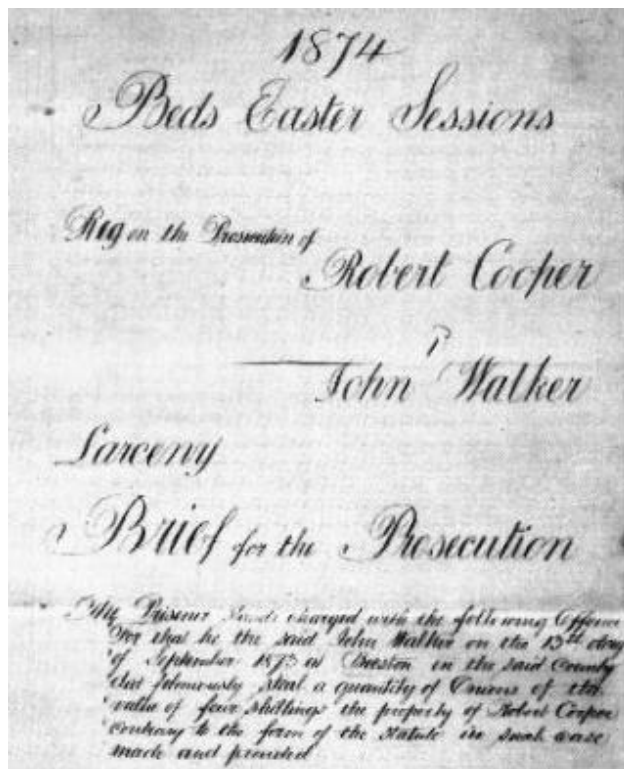 1874
Beds Easter Sessions
Reg on the Prosecution of
Robert Cooper
v
John Walker
Larceny
Brief for the Prosecution
The Prisoner stands charged with the following Offence
For that he the said John Walker on the 13th day
of September 1873 at Beeston in the said County
did feloniously steal a quantity of Onions of the
value of four shillings the property of Robert Cooper
contrary to the form of the Statute in such case
made and provided